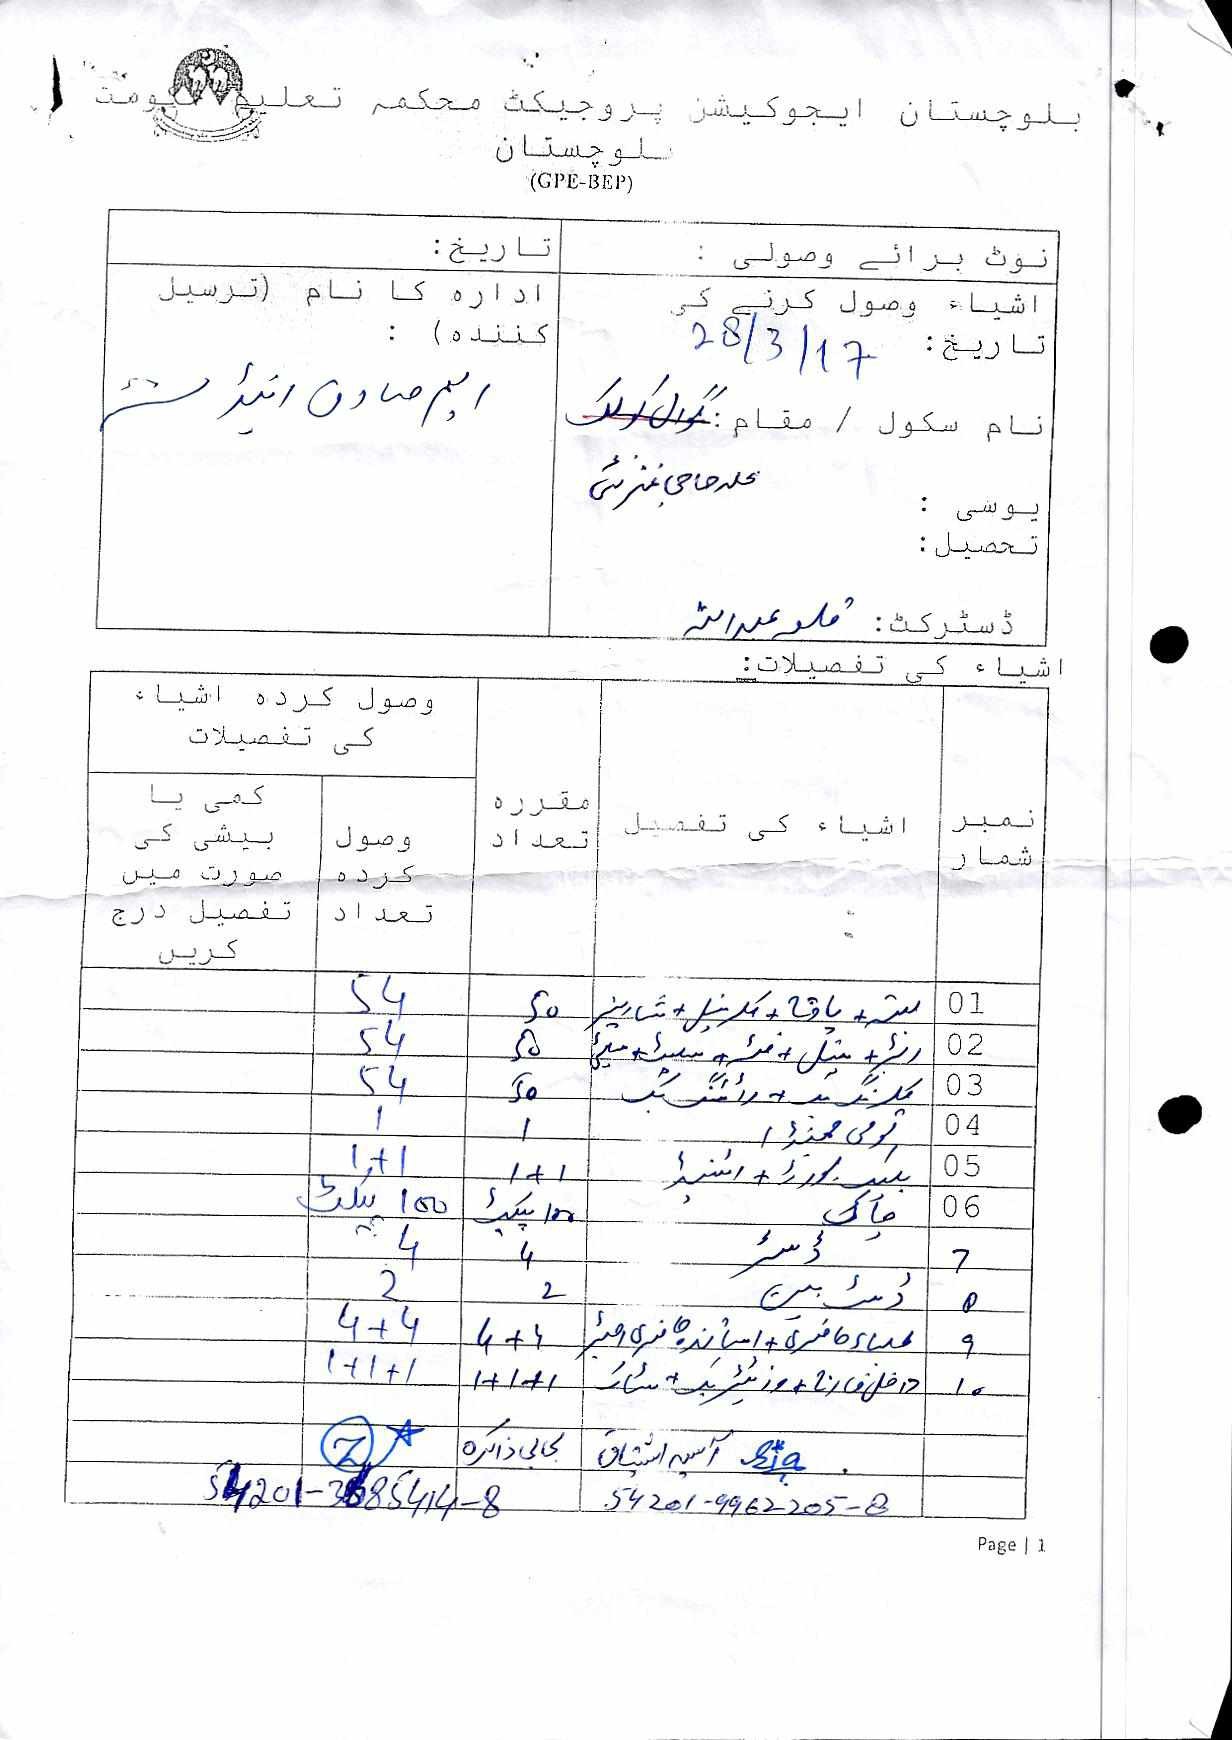 بلوچستان ایجوکیشن پروجیکٹ محکمہ تعلیم حکومت
بلوچستان
(GPE-BEP)
نوٹ برائے وصولی :
تاریخ:
اشیاء وصول کرنے کی
تاریخ: 28/3/17
نام سکول / مقام:
محلہ حاجی
یوسی :
تحصیل:
ڈسٹرکٹ: قلعہ عبداللہ
ادارہ کا نام (ترسیل
کنندہ) :
ایم صادق اینڈ سنز
اشیاء کی تفصیلات:
نمبر شمار
اشیاء کی تفصیل
مقررہ تعداد
وصول کردہ اشیاء کی تفصیلات
وصول کردہ تعداد
کمی یا بیشی کی صورت میں تفصیل درج کریں
01 بستہ + + + شارپنر 50 54
02 + پنسل + + سلیٹ + 50 54
03 کلرنگ بک + ڈرائنگ بک 50 54
04 قومی جھنڈا 1 1
05 بلیک بورڈ + اسٹینڈ 1+1 1+1
06 چاک 100 پیکٹ 100 پیکٹ
7 ڈسٹر 4 4
8 ڈسٹ بین 2 2
9 طلباء حاضری + اساتذہ حاضری رجسٹر 4+4 4+4
10 داخل خارج + وزیٹر بک + سٹاک 1+1+1 1+1+1
آسیہ اشتیاق بی بی ذاکرہ
54201-9962205-8
Page | 1